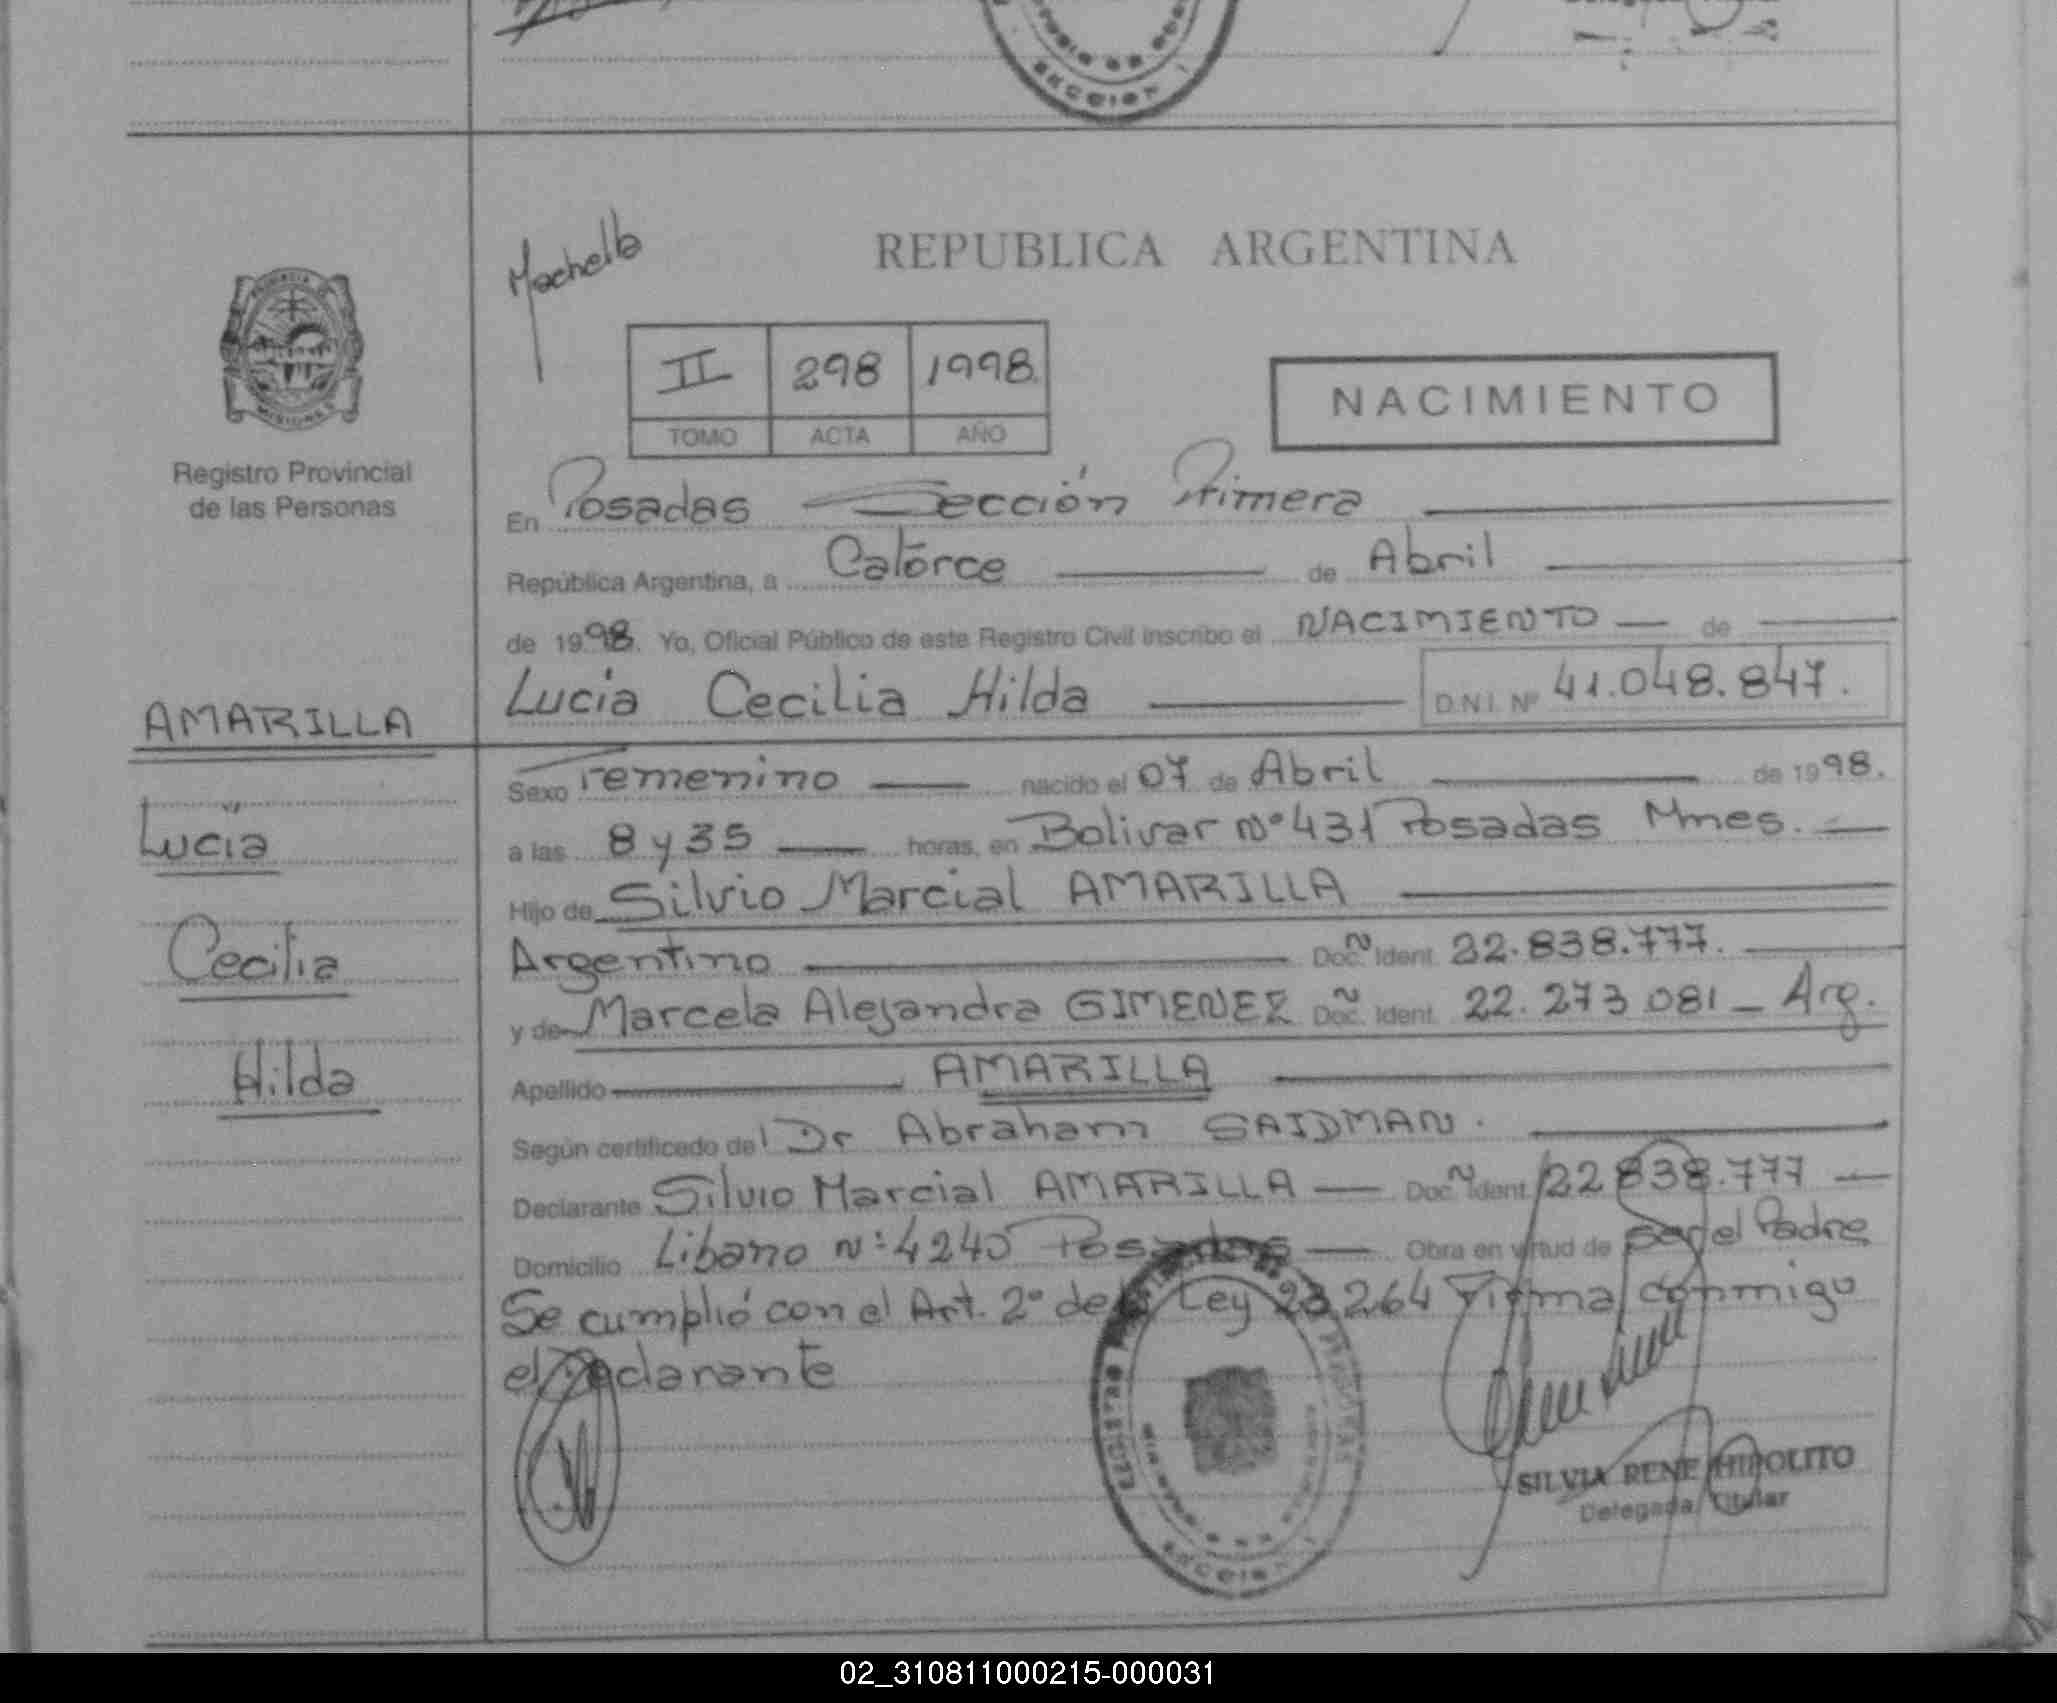 Machelle
REPUBLICA ARGENTINA
II 298 1998.
TOMO ACTA AÑO
NACIMIENTO
Registro Provincial
de las Personas
En Posadas Sección Primera
República Argentina, a Catorce de Abril
de 1998. Yo, Oficial Público de este Registro Civil inscribo el NACIMIENTO de
Lucia Cecilia Hilda D.N.I. Nº 41.048.847.
AMARILLA
Lucia
Cecilia
Hilda
Sexo Femenino nacido el 07 de Abril de 1998.
a las 8 y 35 horas, en Bolivar Nº 431 Posadas Mnes.
Hijo de Silvio Marcial AMARILLA
Argentino Doc. Ident. 22.838.777.
y de Marcela Alejandra GIMENEZ Doc. Ident. 22.273.081 - Arg.
Apellido AMARILLA
Según certificado del Dr Abraham SAIDMAN.
Declarante Silvio Marcial AMARILLA Doc. Ident. 22838.777
Domicilio Libano Nº 4240 Posadas Obra en virtud de ser el Padre
Se cumplió con el Art. 2º de la Ley 23264 Firma conmigo
el Declarante
SECCION 1
SILVIA RENE HIPOLITO
Delegada Titular
02_310811000215-000031